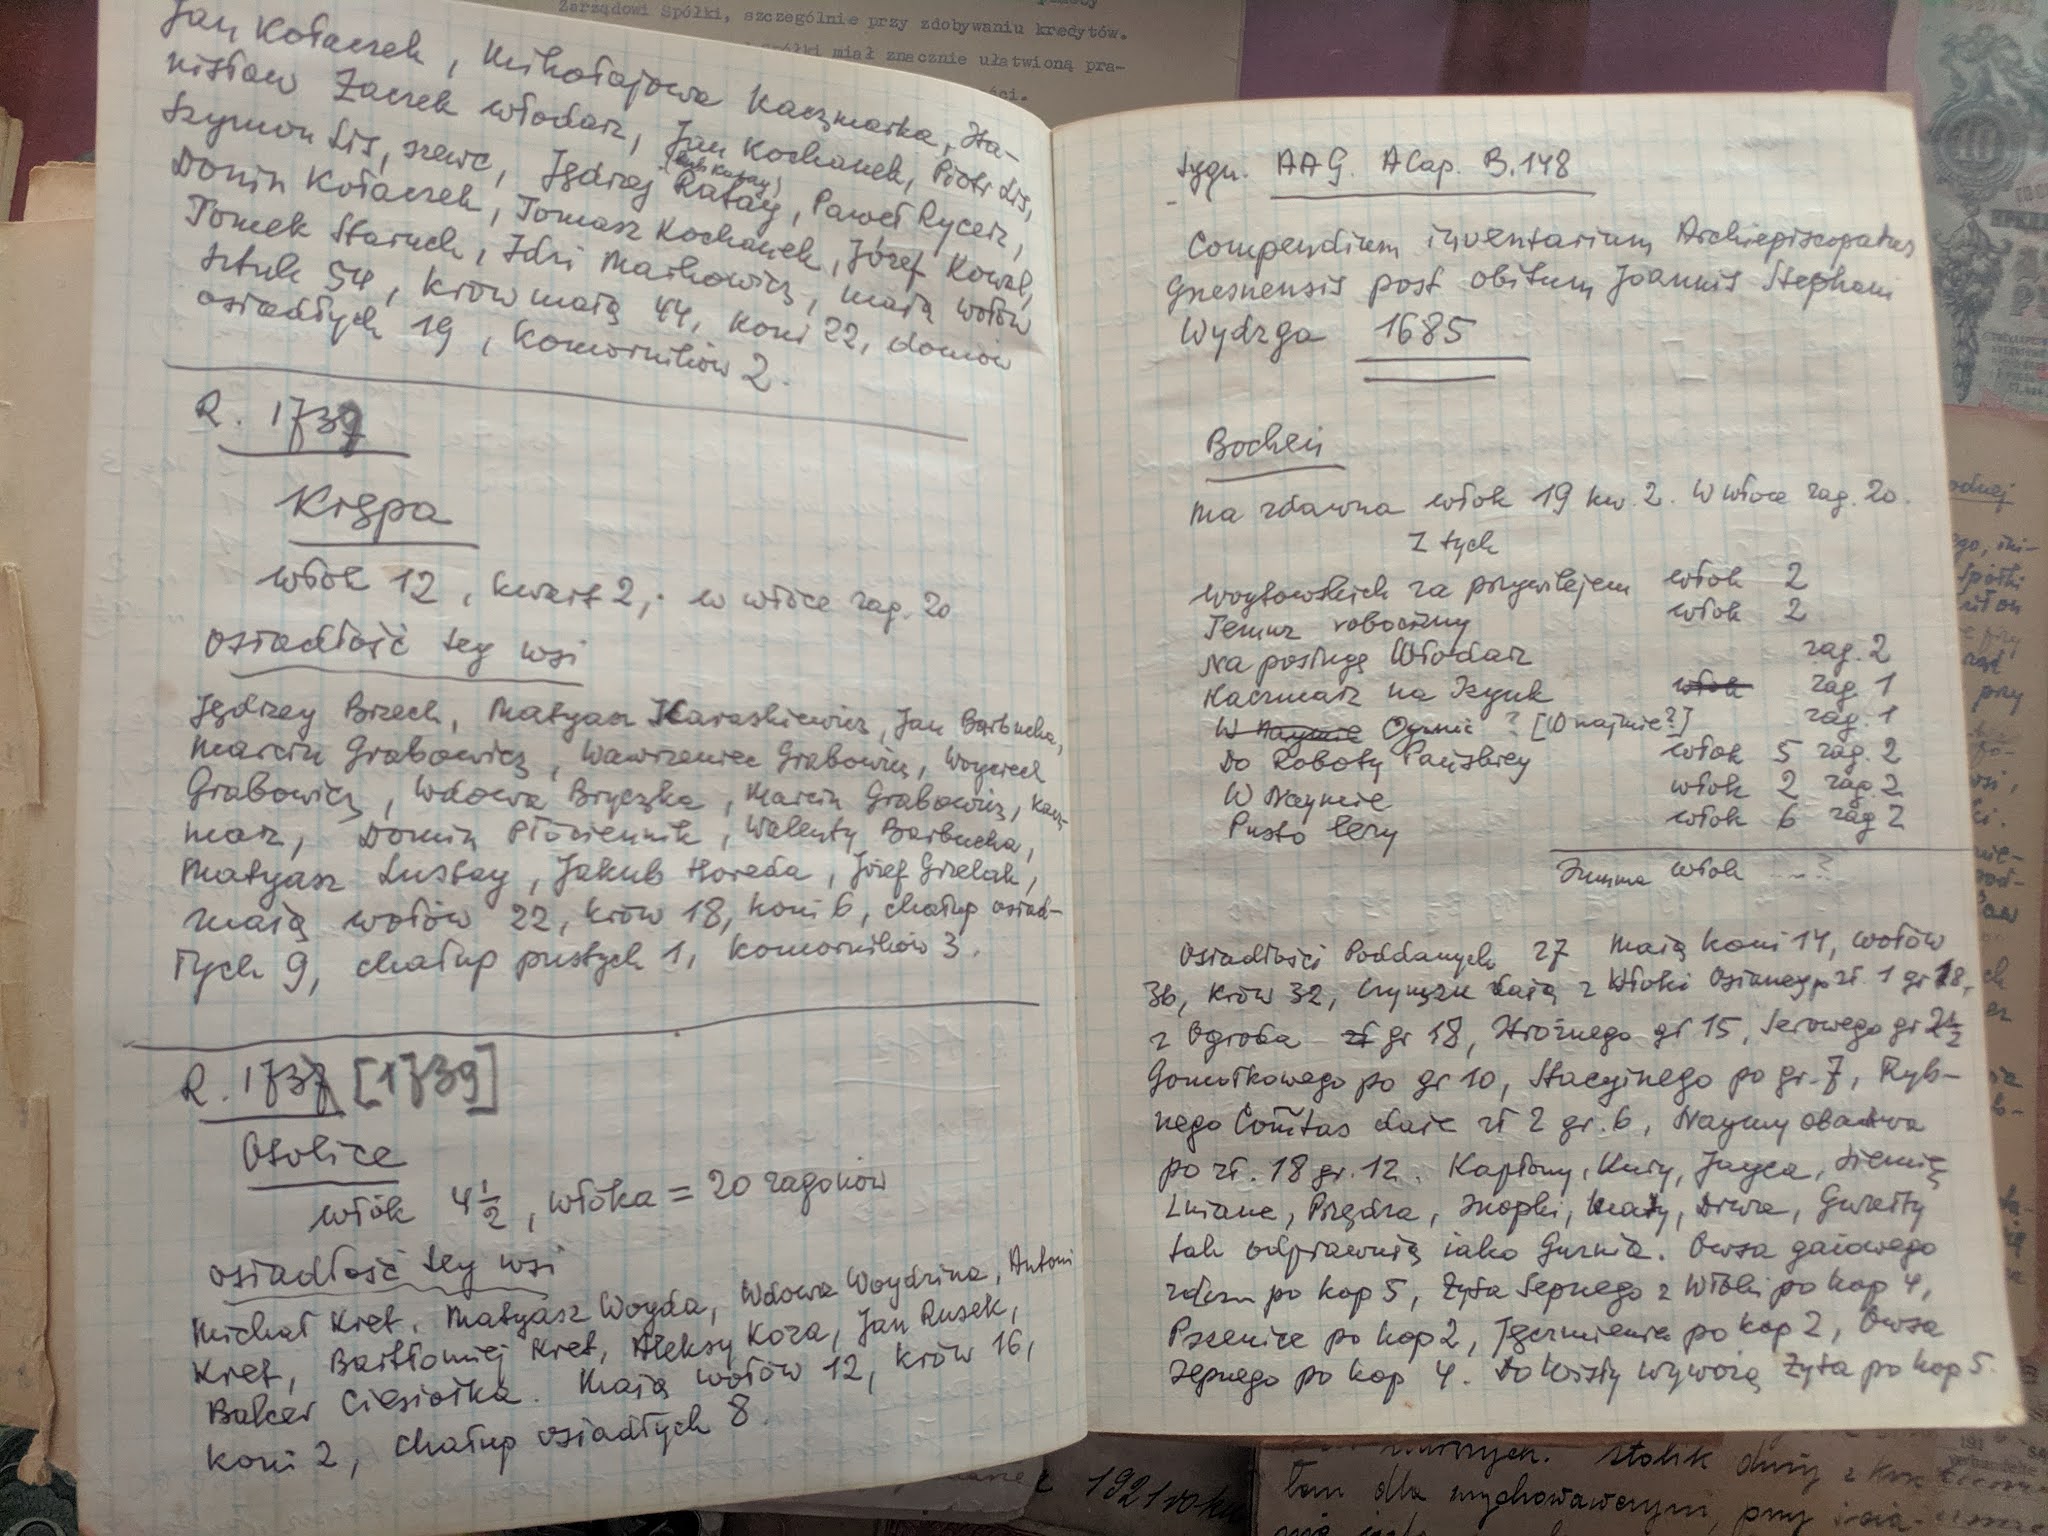 Zarządowi Spółki, szczególnie przy zdobywaniu kredytów.
miał znacznie ułatwioną pra-
Jan Kołaczek, Mikołajowa Kaczmarka, Sta-
nisław Zaczek włodarz, Jan Kochanek, Piotr Lis,
Szymon Lis, szewc, Jędrzej Ratay, Paweł Rycerz,
Domin Kołaczek, Tomasz Kochanek, Józef Kowal,
Tomek Staruch, Idzi Markowicz, maią wołów
sztuk 54, krów maią 44, koni 22, domów
osiadłych 19, komorników 2.
R. 1739
Krępa
włók 12, kwart 2, w włóce zag. 20
Osiadłość tey wsi
Jędrzey Brzech, Matyasz Karaskiewicz, Jan Barbucha,
Marcin Grabowicz, Wawrzeniec Grabowicz, Woyciech
Grabowicz, Wdowa Bryczka, Marcin Grabowicz, kacz-
marz, Domin Płóciennik, Walenty Barbucha,
Matyasz Lustay, Jakub Horeda, Józef Grzelak,
maią wołów 22, krów 18, koni 6, chałup osiad-
łych 9, chałup pustych 1, komorników 3.
R. 1737 [1739]
Osolice
włók 4 1/2, włóka = 20 zagonów
osiadłość tey wsi
Michał Kret, Matyasz Woyda, Wdowa Woydzina, Antoni
Kret, Bartłomiej Kret, Aleksy Koza, Jan Rusek,
Balcer Ciesiołka. Maią wołów 12, krów 16,
koni 2, chałup osiadłych 8.
Sygn. AAG. ACap. B.148
Compendium inventarium Archiepiscopatus
Gnesnensis post obitum Joannis Stephani
Wydzga 1685
Bocheń
Ma zdawna włok 19 kw. 2. W włoce zag. 20.
Z tych
Woytowskich za przywilejem włok 2
Temuz robocizny włok 2
Na posługę Włodarz zag. 2
Kaczmarz na Szynk włok zag. 1
W Naymie Ogrnic ? [W najmie?] zag. 1
Do Roboty Pańskiey włok 5 zag. 2
W Naymie włok 2 zag. 2
Pusto leży włok 6 zag 2
Summa włok ....?
Osiadłości Poddanych 27 maią koni 14, wołów
36, krów 32, Czynszu daią z Włoki Osiadney zł. 1 gr 18,
z Ogroda zł gr 18, Stróżnego gr 15, Serowego gr 2 1/2
Gomułkowego po gr 10, Stacyjnego po gr. 7, Ryb-
nego Com̃tas daie zł 2 gr. 6, Naymy
po zł. 18 gr. 12. Kapłony, Kury, Jayca, Siemię
Lniane, Przędza, Snopki, Drwa, Gwałty
tak odprawuią iako Gurnia. Owsa gaiowego
po kop 5, Żyta Sepnego z Włoki po kop 4,
Pszenice po kop 2, Jęczmienia po kop 2, Owsa
sepnego po kop 4. Do Wisły wywożą Żyta po kop 5.
1921 roku
stolik duży z
tam dla wychowawczyni, przy